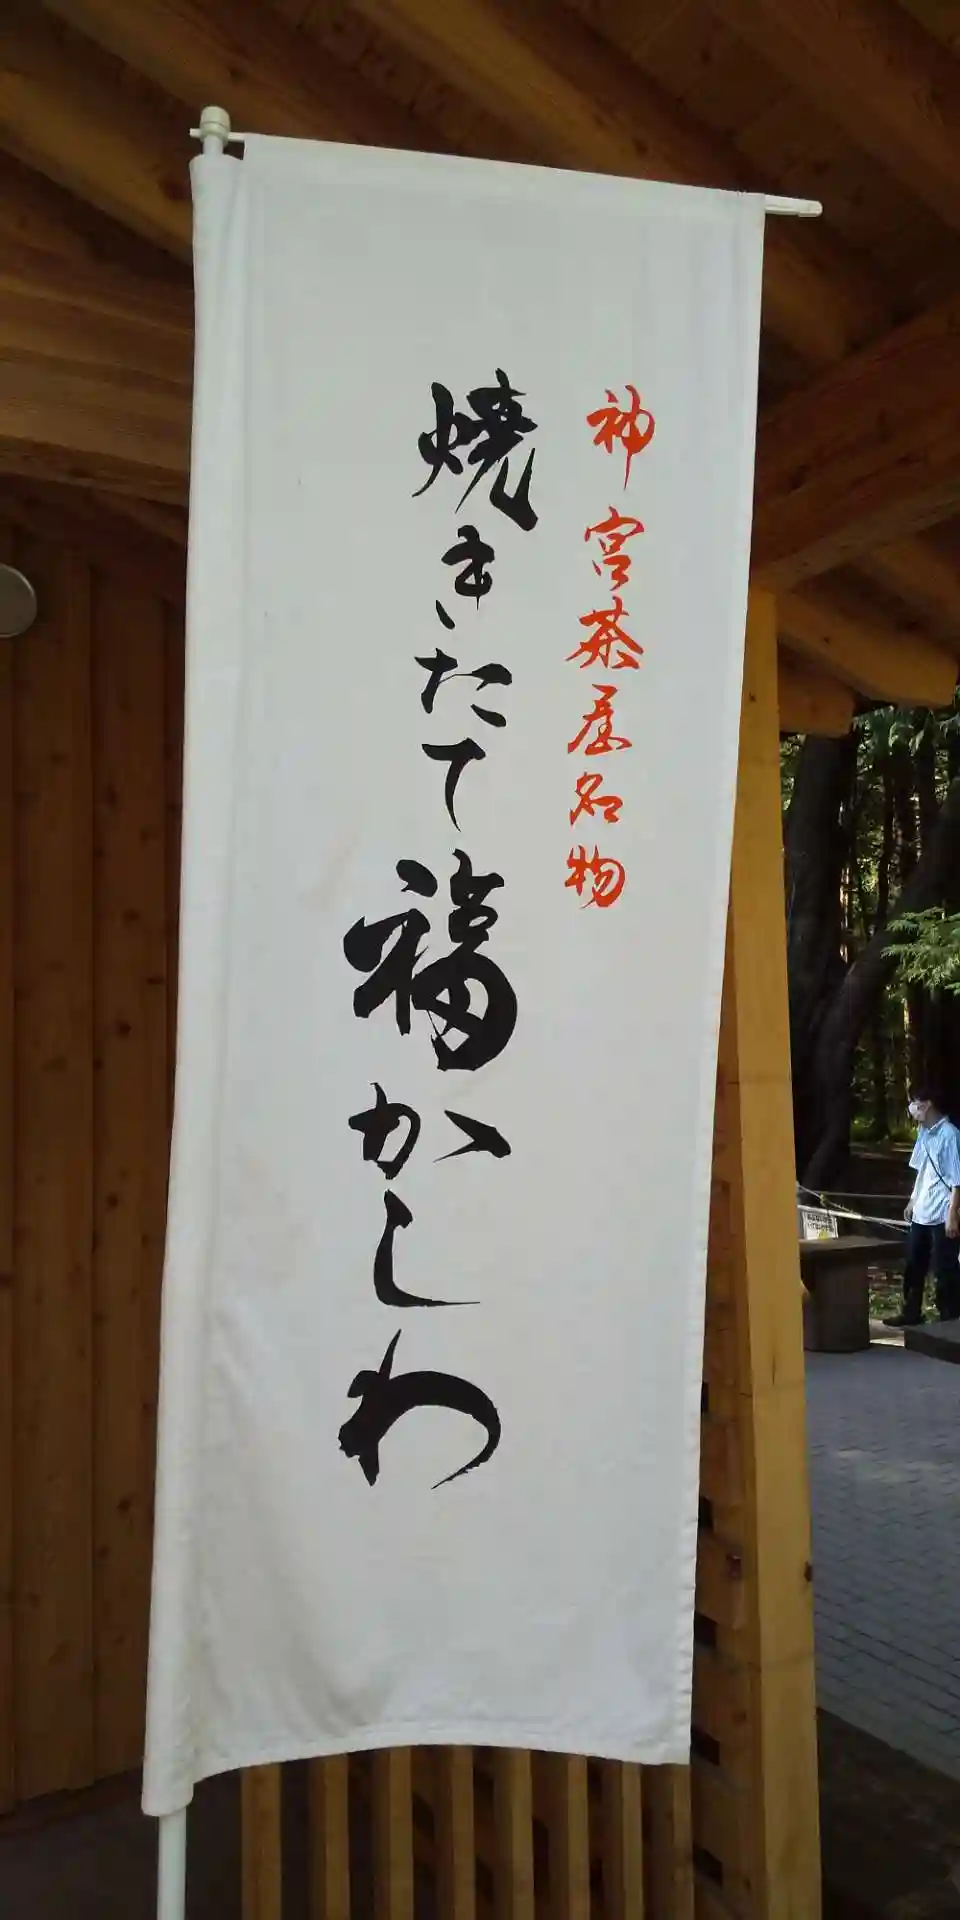 神宮茶屋名物
焼きたて福かしわ